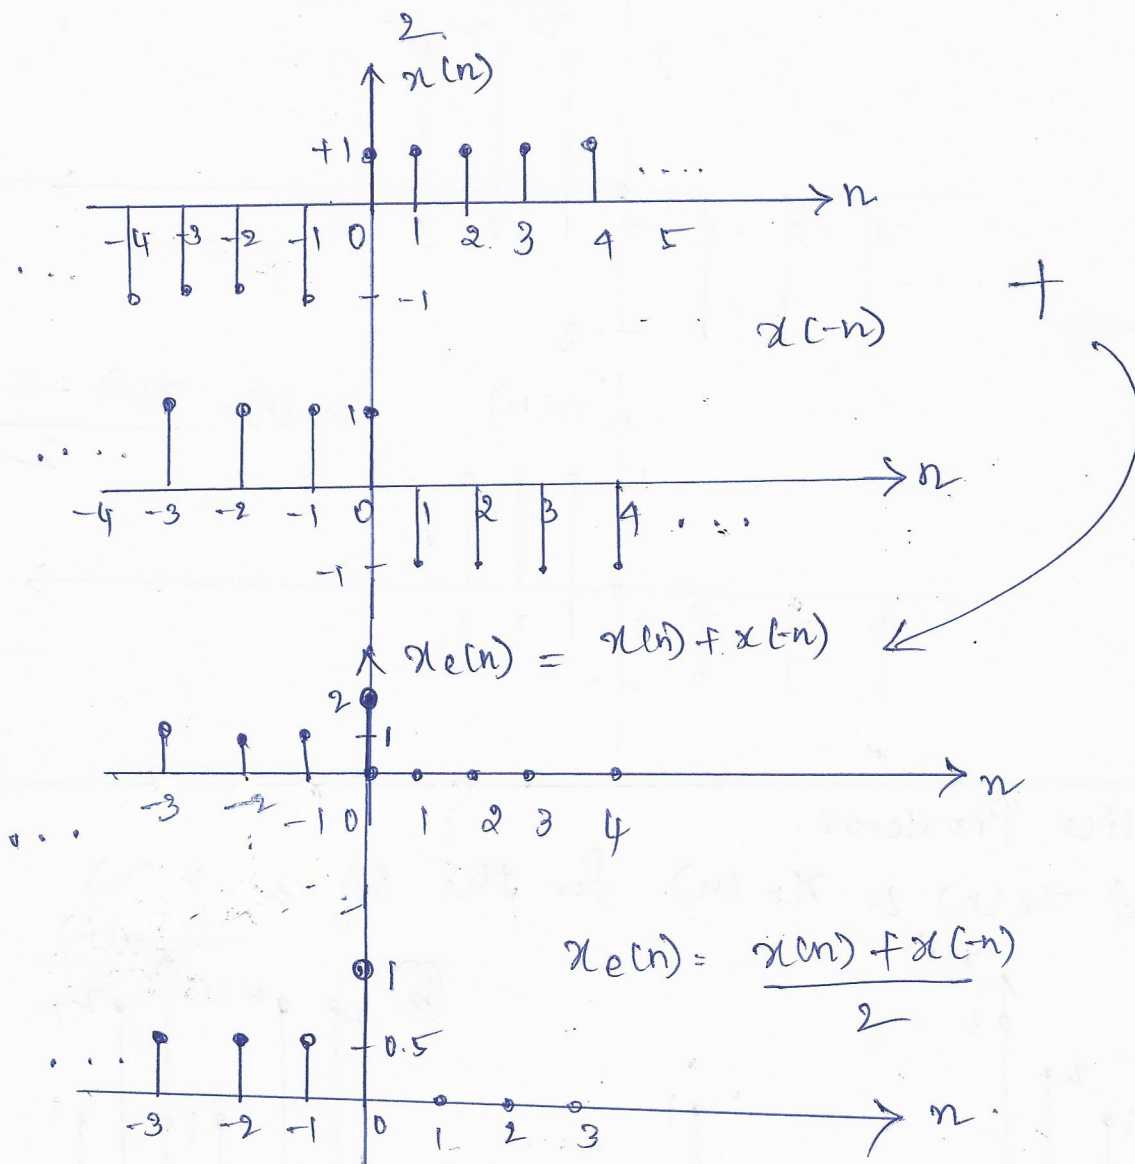 2.
x(n)
+1
....
n
-4 -3 -2 -1 0 1 2. 3 4 5
...
-1
+
x(-n)
1
....
n
-4 -3 -2 -1 0 1 2 3 4 ...
-1
xe(n) = x(n) + x(-n)
2
1
n
-3 -2 -1 0 1 2 3 4
...
xe(n) = x(n) + x(-n)
2
1
0.5
...
n.
-3 -2 -1 0 1 2 3